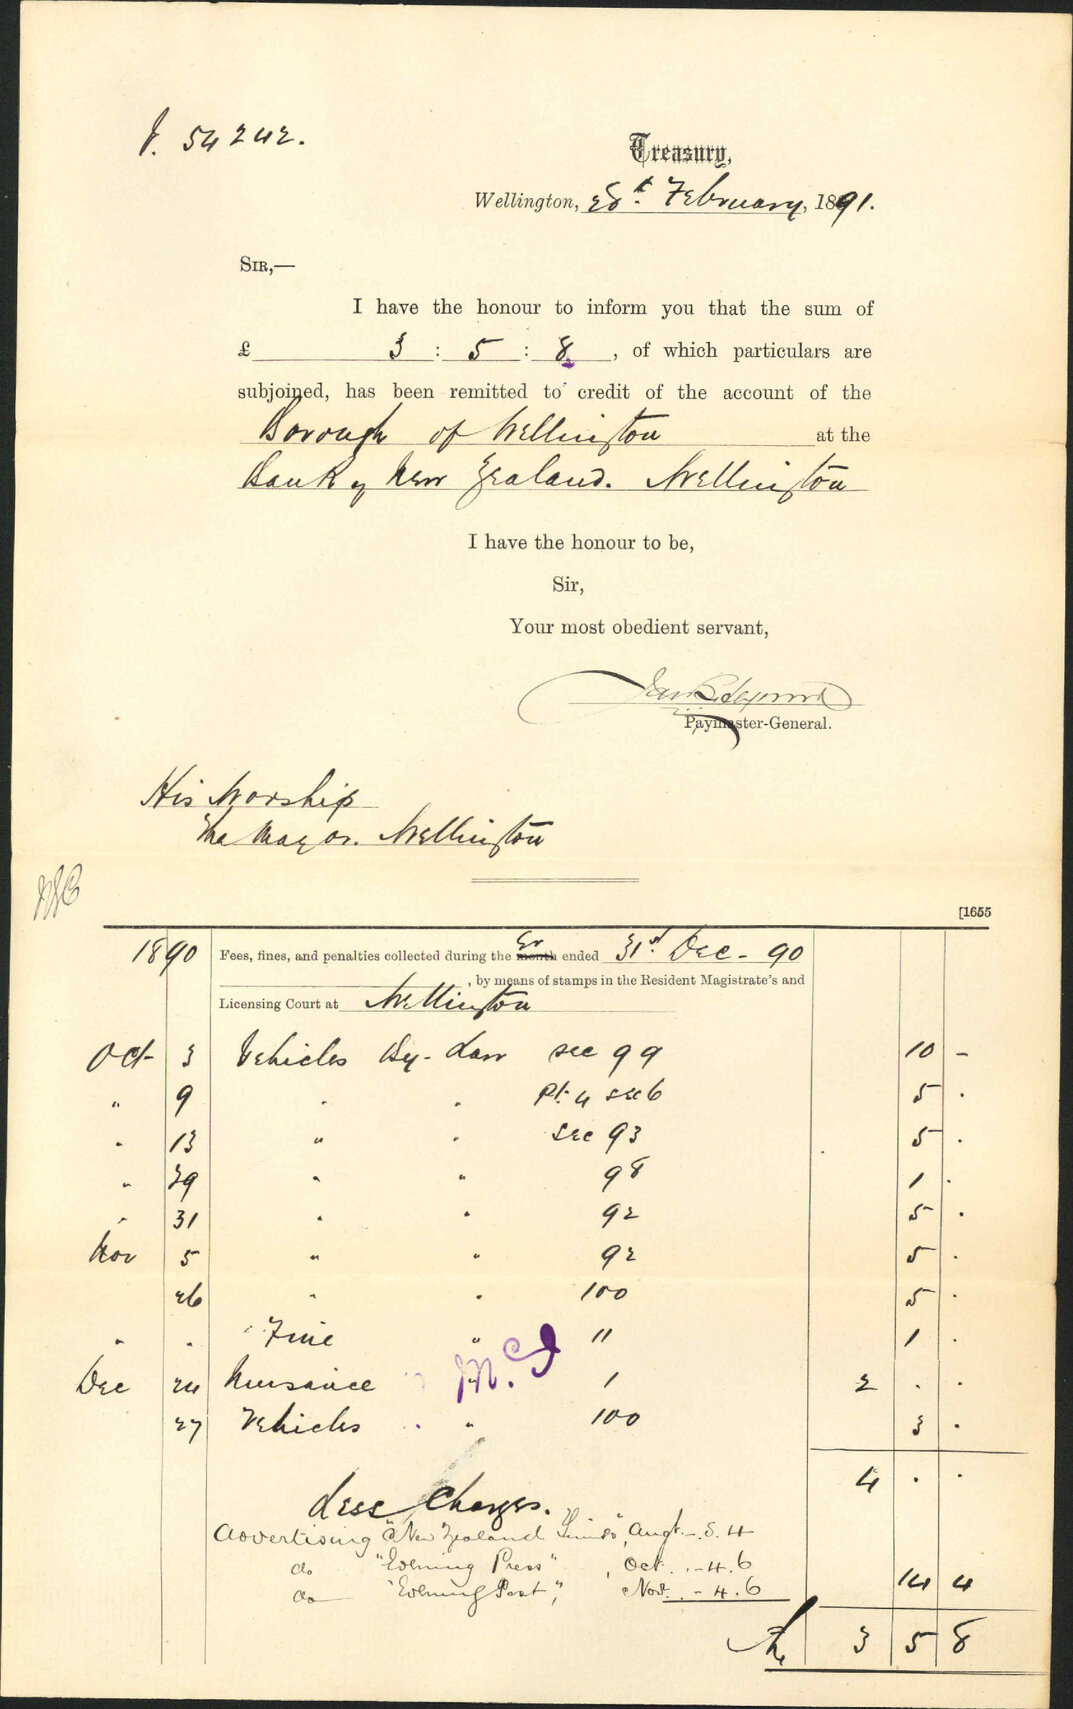 54242.
Treasury,
Wellington, 28th. February, 1891.
SIR,—
I have the honour to inform you that the sum of
£ 3 : 5 : 8 , of which particulars are
subjoined, has been remitted to credit of the account of the
Borough of Wellington at the
Bank of New Zealand. Wellington
I have the honour to be,
Sir,
Your most obedient servant,
Paymaster-General.
His Worship
The Mayor. Wellington
[1655
1890 Fees, fines, and penalties collected during the month Qr ended 31st Dec - 90
, by means of stamps in the Resident Magistrate's and
Licensing Court at Wellington
Oct 3 Vehicles By-Law sec 99 10 -
" 9 " " pt. 4 sec 6 5 .
" 13 " " sec 93 5 .
" 29 " " 98 1 .
" 31 " " 92 5 .
Nov 5 " " 92 5 .
26 " " 100 5 .
" " Fine " 11 1 .
Dec 24 Nuisance " 1 2 . .
27 Vehicles " 100 3 .
4 . .
Less Charges.
Advertising "New Zealand Times", Augt. - 5.4
do "Evening Press", Oct. - 4.6
do "Evening Post", Nov. - 4.6 14 4
£ 3 5 8